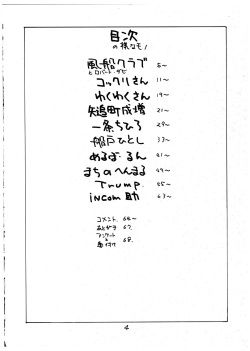 目次
の様なモノ
風船クラブ 5〜
ヒロバート・サビ
コックリさん 11〜
わくわくさん 19〜
矢追町成増 21〜
一条ちひろ 29〜
船戸ひとし 33〜
めるば・るん 41〜
まちのへんまる 49〜
Trump. 55〜
incom助 63〜
コメント. 64〜
あとがき 67.
アンケート
&
奥付ケ 68.
4